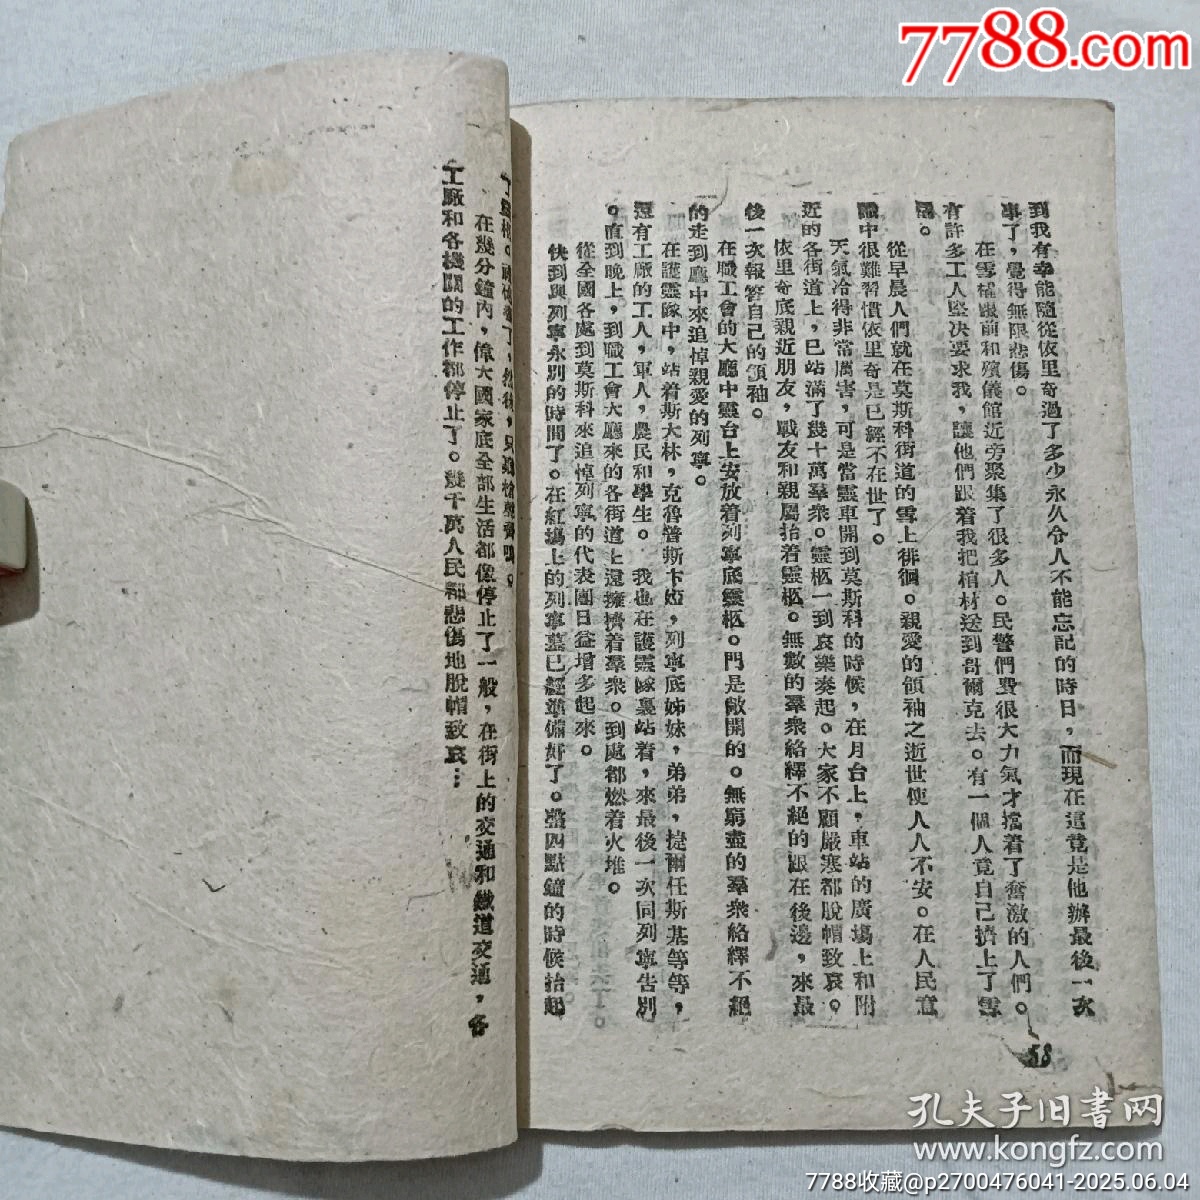 7788.com
到我有幸能隨從依里奇過了多少永久令人不能忘記的時日，而現在這竟是他辦最後一次
事了，覺得無限悲傷。
在雪橇跟前和殯儀館近旁聚集了很多人。民警們費很大力氣才擋着了奮激的人們。
有許多工人堅決要求我，讓他們跟着我把棺材送到哥爾克去。有一個人竟自己擠上了雪
橇。
從早晨人們就在莫斯科街道的雪上徘徊。親愛的領袖之逝世使人人不安。在人民意
識中很難習慣依里奇是已經不在世了。
天氣冷得非常厲害，可是當靈車開到莫斯科的時候，在月台上，車站的廣塲上和附
近的各街道上，已站滿了幾十萬羣衆。靈柩一到哀樂奏起。大家不顧嚴寒都脫帽致哀。
依里奇底親近朋友，戰友和親屬抬着靈柩。無數的羣衆絡繹不絕的跟在後邊，來最
後一次報答自己的領袖。
在職工會的大廳中靈台上安放着列寧底靈柩。門是敞開的。無窮盡的羣衆絡繹不絕
的走到廳中來追悼親愛的列寧。
在護靈隊中，站着斯大林，克魯普斯卡婭，列寧底姊妹，弟弟，捷爾任斯基等等，
還有工廠的工人，軍人，農民和學生。我也在護靈隊裏站着，來最後一次同列寧告別
。直到晚上，到職工會大廳來的各街道上還擁擠着羣衆。到處都燃着火堆。
從全國各處到莫斯科來追悼列寧的代表團日益增多起來。
快到與列寧永別的時間了。在紅塲上的列寧墓已經準備好了。整四點鐘的時候抬起
58
了靈柩。
在幾分鐘內，偉大國家底全部生活都像停止了一般，在街上的交通和鐵道交通，各
工廠和各機關的工作都停止了。幾千萬人民都悲傷地脫帽致哀…
孔夫子旧書网
www.kongfz.com
7788收藏@p2700476041-2025.06.04